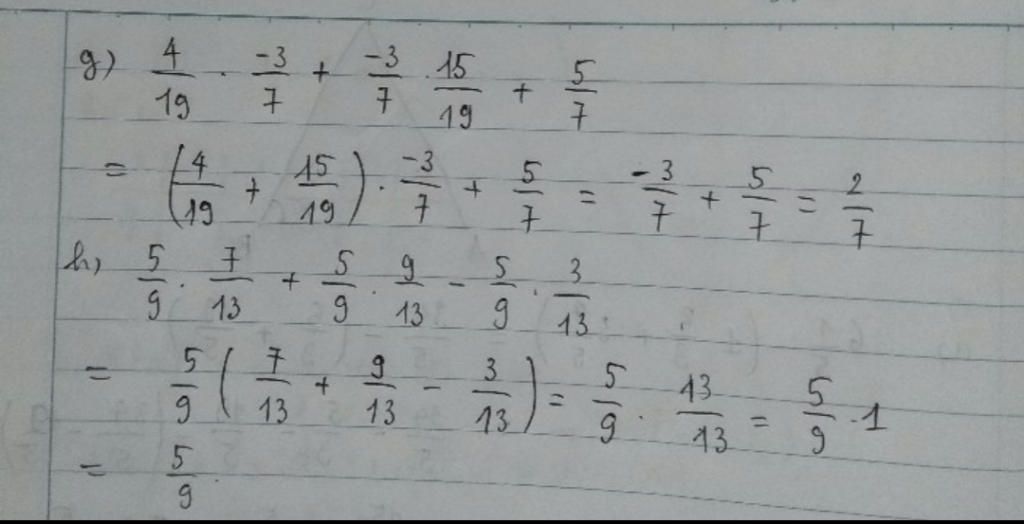 g) 4/19 . -3/7 + -3/7 . 15/19 + 5/7
= (4/19 + 15/19) . -3/7 + 5/7 = -3/7 + 5/7 = 2/7
h) 5/9 . 7/13 + 5/9 . 9/13 - 5/9 . 3/13
= 5/9 (7/13 + 9/13 - 3/13) = 5/9 . 13/13 = 5/9 . 1
= 5/9.